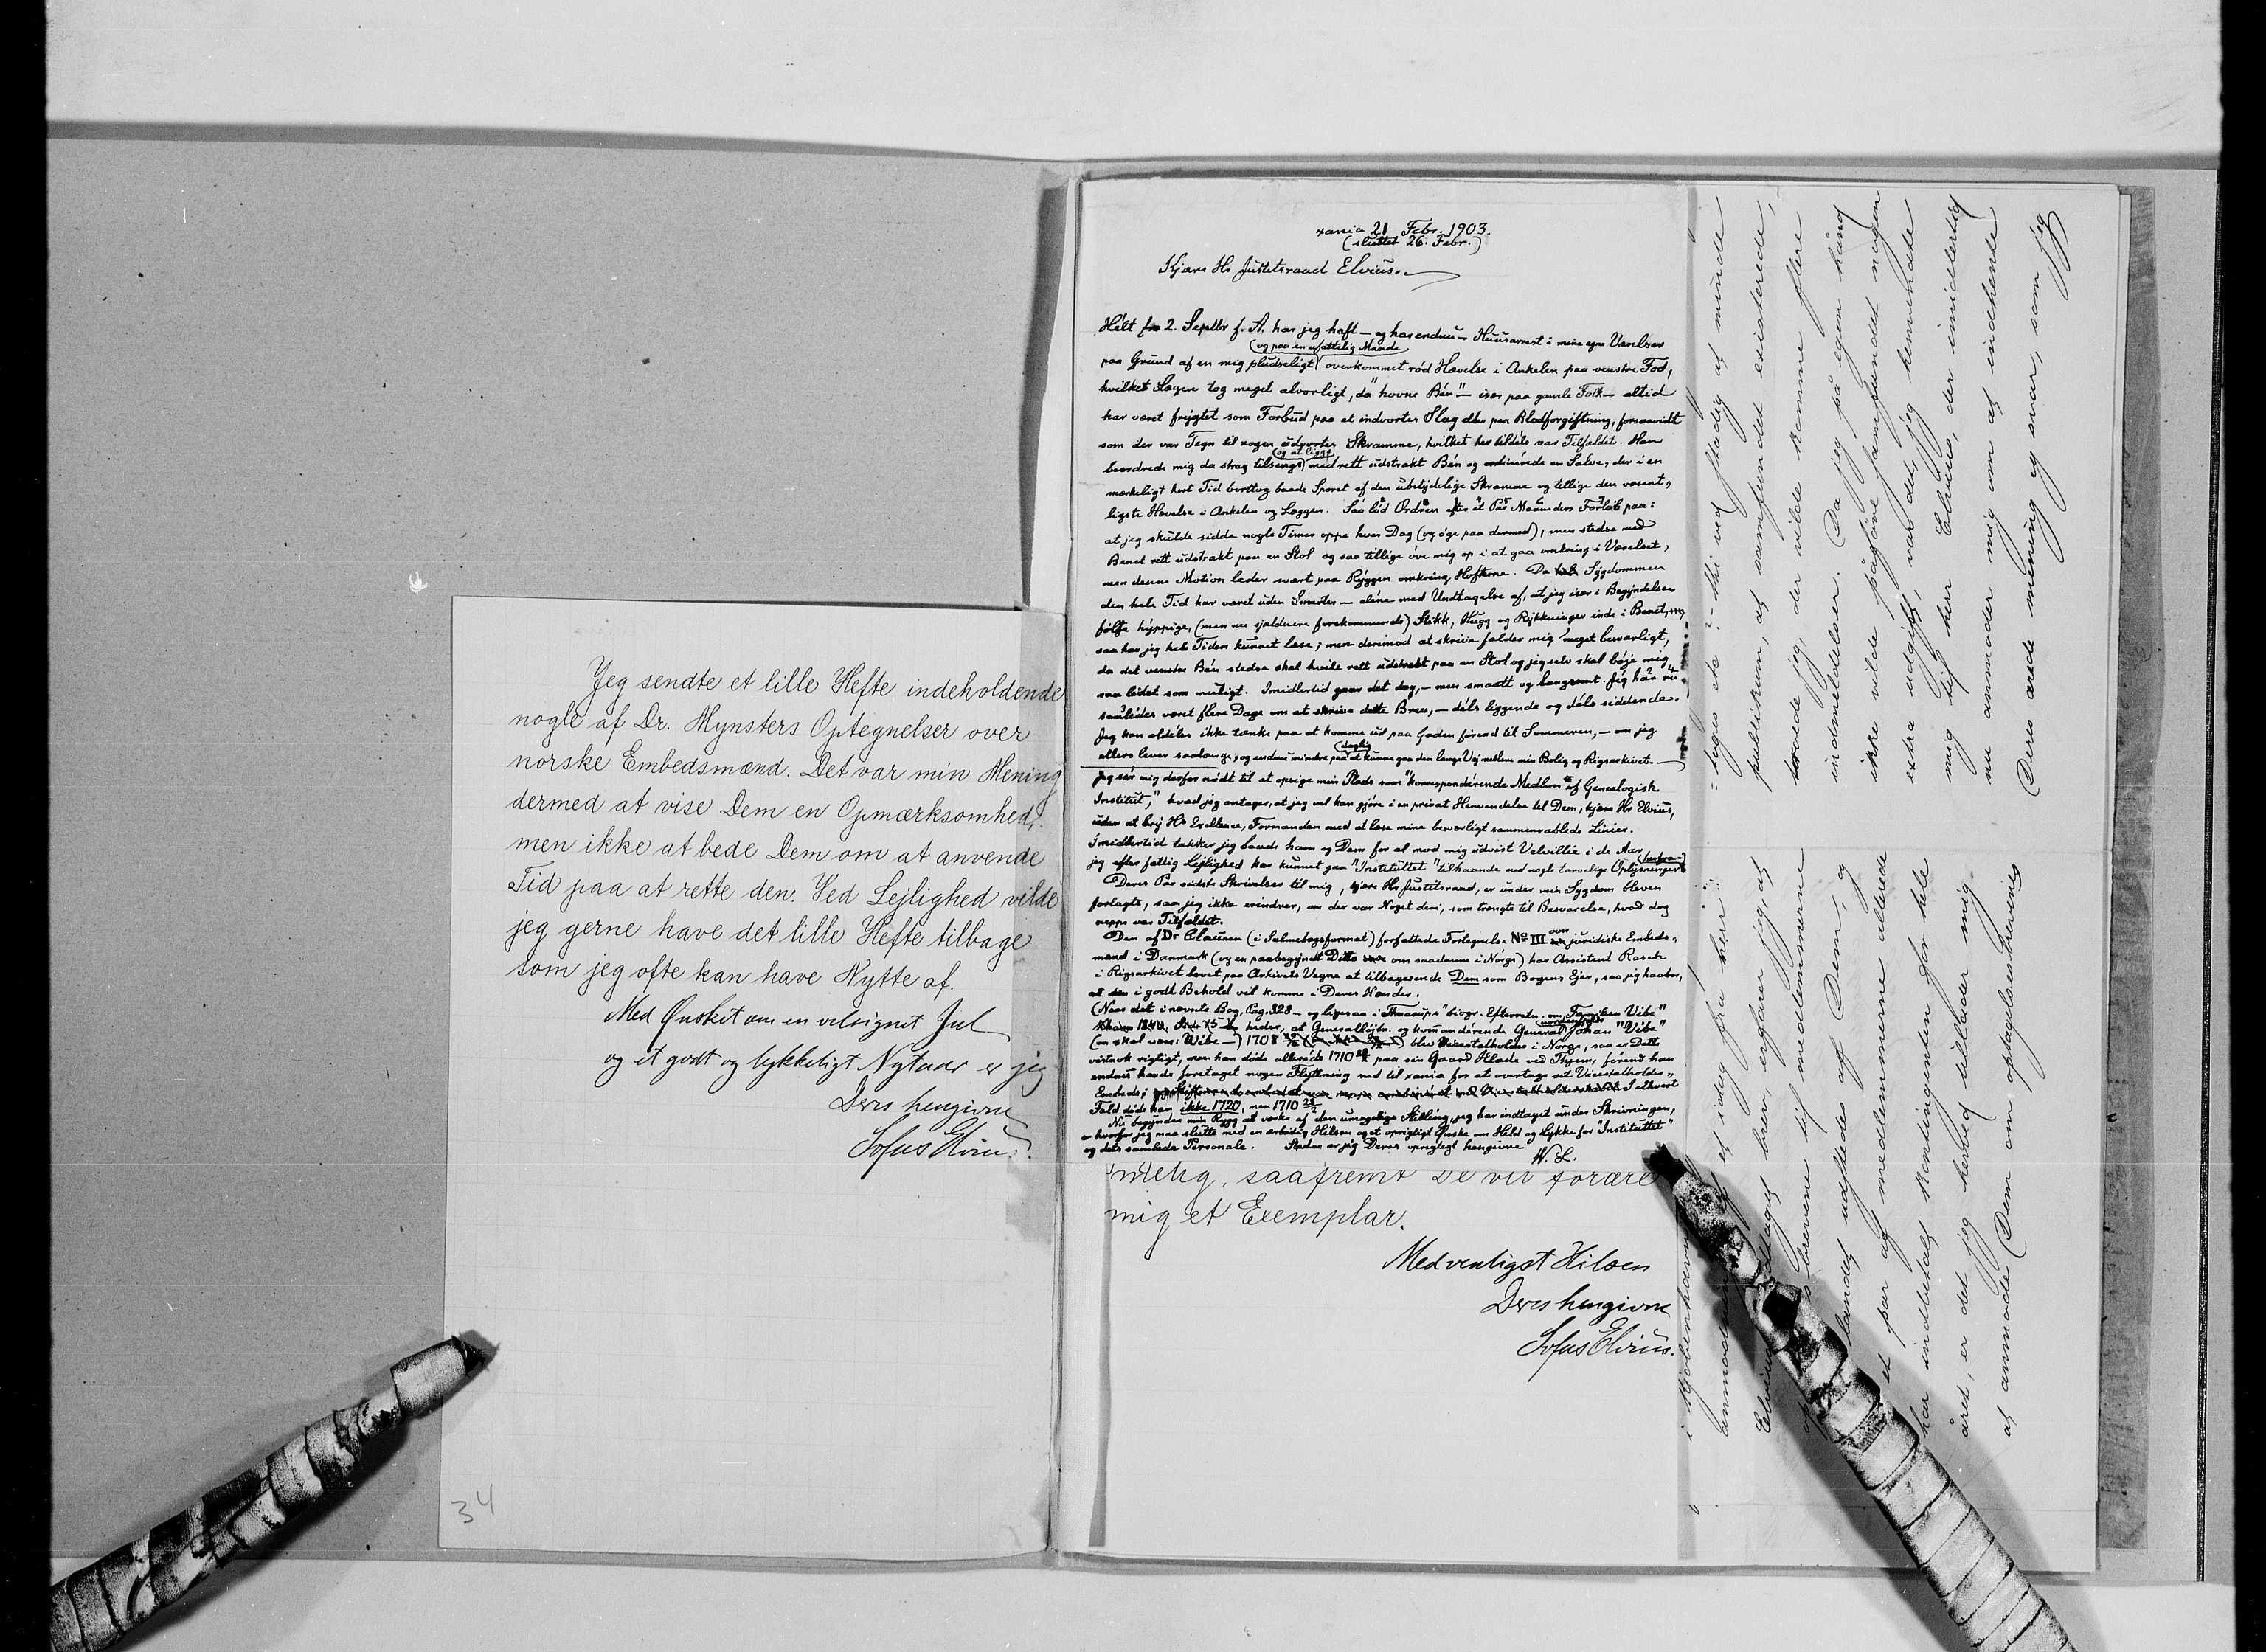 Jeg sendte et lille Hefte indeholdende
nogle af Dr. Mynsters Optegnelser over
norske Embedsmænd. Det var min Mening
dermed at vise Dem en Opmærksomhed,
men ikke at bede Dem om at anvende
Tid paa at rette den. Ved Lejlighed vilde
jeg gerne have det lille Hefte tilbage
som jeg ofte kan have Nytte af.
Med Ønsket om en velsignet Jul
og et godt og lykkeligt Nytaar er jeg
Deres hengivne
Sofus Elvius.
34
xania 21 Febr. 1903.
(sluttet 26. Febr.)
Kjære Hr Justitsraad Elvius.
Hélt fra 2. Septbr f. A. har jeg haft — og har endnu — Huusarrest i mine egne Værelser
(og paa en ufattelig Maade)
paa Grund af en mig pludseligt overkommet rød Hævelse i Ankelen paa venstre Fod,
hvilket Lægen tog meget alvorligt, da "hovne Bén" — især paa gamle Folk — altid
har været frygtet som Forbud paa et indvortes Slag eller paa Blodforgiftning, forsaavidt
som der var Tegn til nogen udvortes Skramme, hvilket her tildéls var Tilfældet. Han
(og at ligge)
beordrede mig da strax tilsengs med rett udstrakt Bén og ordinérede en Salve, der i en
mærkeligt kort Tid borttog baade Sporet af den ubetydelige Skramme og tillige den væsent-
ligste Hævelse i Ankelen og Læggen. Saa lød Ordren efter et Par Maaneders Forløb paa:
at jeg skulde sidde nogle Timer oppe hver Dag (og øge paa dermed), men stedse med
Benet rett udstrakt paa en Stol og saa tillige øve mig op i at gaa omkring i Værelset,
men denne Motion leder svært paa Ryggen omkring Hofterne. Da Sygdommen
den hele Tid har været uden Smerter — aléne med Undtagelse af, at jeg især i Begyndelsen
følte hyppige, (men nu sjældnere forekommende) Stikk, Hugg og Rykkninger inde i Benet,
saa har jeg hele Tiden kunnet læse; men derimod at skrive falder mig meget besværligt,
da det venstre Bén stedse skal hvile rett udstrakt paa en Stol og jeg selv skal bøje mig
saa lidet som muligt. Imidlertid gaar det dog, — men smaatt og langsomt. Jeg har nu
saaledes været flere Dage om at skrive dette Brev, — déls liggende og déls siddende.
Jeg kan aldéles ikke tænke paa at komme ud paa Gaden førend til Sommeren, — om jeg
(daglig)
ellers lever saalænge, og endnu mindre paa at kunne gaa den lange Vej mellem min Bolig og Rigsarkivet. —
Jeg sér mig derfor nødt til at opsige min Plads som "korresponderende Medlem af Genealogisk
Institut," hvad jeg antager, at jeg vel kan gjøre i en privat Henvendelse til Dem, kjære Hr Elvius,
uden at bry Hs Excellence, Formanden med at læse mine besværligt sammenrablede Linier.
Imidlertid takker jeg baade ham og Dem for al mod mig udvist Velvillie i de Aar,
jeg efter fattig Lejlighed har kunnet gaa "Instituttet" tilhaande med nogle tarvelige Oplysninger
Deres Par sidste Skrivelser til mig, kjære Hr Justitsraad, er under min Sygdom bleven
forlagte, saa jeg ikke erindrer, om der var Noget deri, som trængte til Besvarelse, hvad dog
neppe var Tilfældet.
Den af Dr Clausen (i Salmebogsformat) forfattede Fortegnelse No III over juridiske Embeds-
mænd i Danmark (og en paabegyndt Ditto om saadanne i Norge) har Assistent Rasch
i Rigsarkivet lovet paa Arkivets Vegne at tilbagesende Dem som Bogens Ejer, saa jeg haaber,
at den i godt Behold vil komme i Deres Hænder.
(Naar det i nævnte Bog, Pag. 328 — og ligesaa i Thaarups "biogr. Efterretn. om Familien Vibe"
heder, at Generalløjtn. og kommandérende General (nordenfjelds) Johan "Vibe"
(en skal være: Wibe —) 1708 blev Vicestatholder i Norge, saa er Dette
vistnok rigtigt, men han døde allerede 1710 paa sin Gaard Hlade ved Thjem, førend han
endnu havde foretaget nogen Flyttning ned til xania for at overtage sit Vicestatholder-
Embede; I ethvert
Fald døde han ikke 1720, men 1710
Nu begynder min Rygg at værke af den umagelige Stilling, jeg har indtaget under Skrivningen,
hvorfor jeg maa slutte med en ærbødig Hilsen og et oprigtigt Ønske om Held og Lykke for "Instituttet"
og dets samlede Personale. Stedse er jeg Deres oprigtigt hengivne
W. L.
saafremt De vil forære
mig et Exemplar.
Med venligst Hilsen
Deres hengivne
Sofus Elvius.
i Kjøbenhavn
et idag fra herr
Elvius modtaget brev, erfarer jeg, at
brevene til medlemmerne
landet udstedes af Dem, og
et par af medlemmerne allerede
har indbetalt kontingenten for hele
året, er det jeg herved tillader mig
at anmode Dem om opgivelse hvoraf
toges ete? - thi ved stadig at minde
publikum, at samfundet existerede,
troede jeg, der vilde komme flere
indmeldelser. Da jeg på egen hånd
ikke vilde pågøre samfundet nogen
extra udgift, var det, jeg henvendte
mig til herr Elvius, der imidlertid
nu anmoder mig om at indhente
Deres ærede mening og svar, som jeg